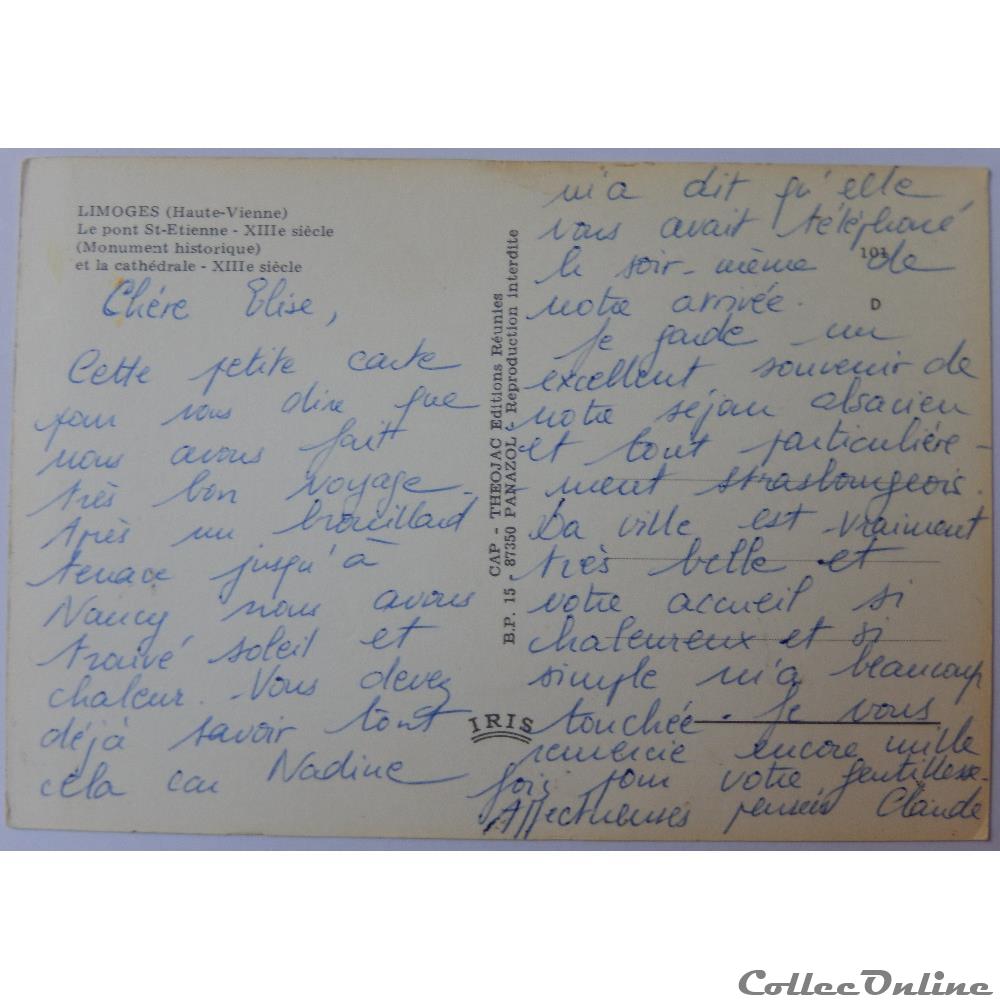 LIMOGES (Haute-Vienne)
Le pont St-Etienne - XIIIe siècle
(Monument historique)
et la cathédrale - XIIIe siècle
Chère Elise,
Cette petite carte
pour vous dire que
nous avons fait
très bon voyage.
Après un brouillard
tenace jusqu'à
Nancy nous avons
trouvé soleil et
chaleur. Vous devez
déjà savoir tout
cela car Nadine
CAP - THEOJAC Editions Réunies
B.P. 15 - 87350 PANAZOL - Reproduction interdite
IRIS
101
D
m'a dit qu'elle
vous avait téléphoné
le soir-même de
notre arrivée.
Je garde un
excellent souvenir de
notre séjour alsacien
et tout particulière-
ment strasbourgeois.
La ville est vraiment
très belle et
votre accueil si
chaleureux et si
simple m'a beaucoup
touchée. Je vous
remercie encore mille
fois pour votre gentillesse.
Affectueuses pensées Claude
CollecOnline